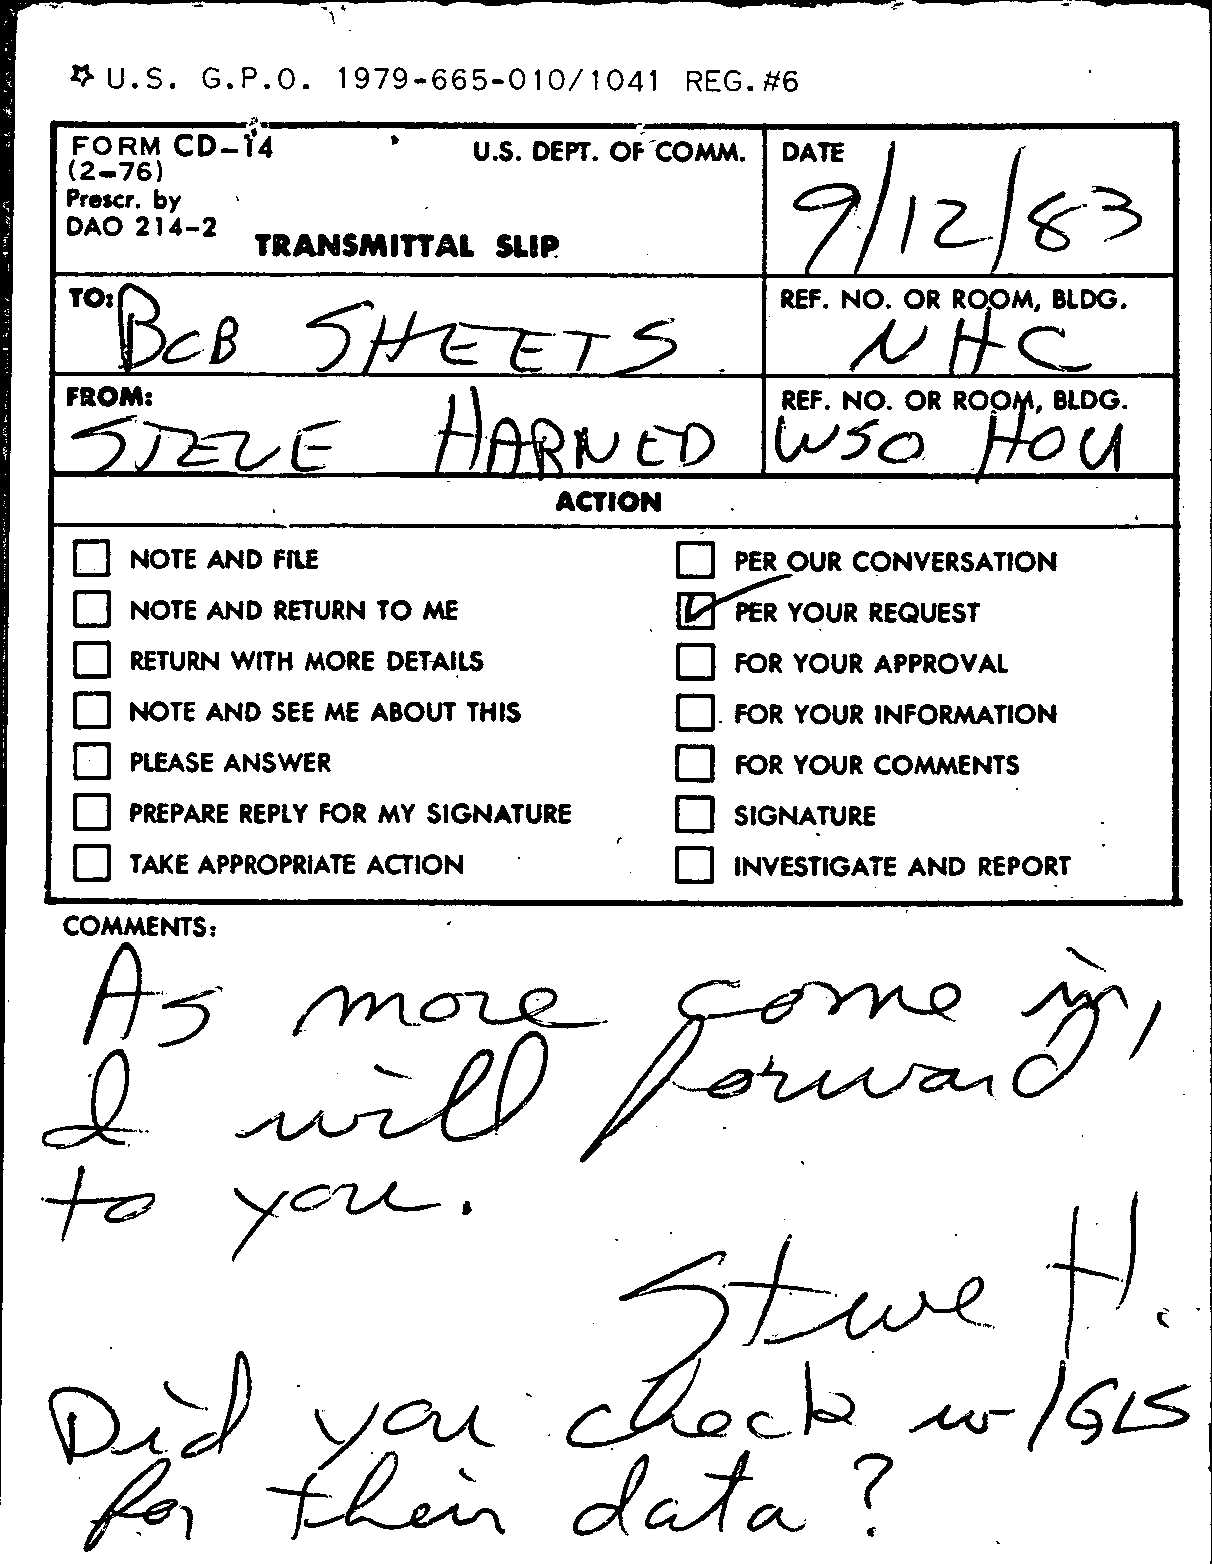 ☆ U.S. G.P.O. 1979-665-010/1041 REG.#6
FORM CD-14 U.S. DEPT. OF COMM.
(2-76)
Prescr. by
DAO 214-2
TRANSMITTAL SLIP
DATE
9/12/83
TO: BOB SHEETS
REF. NO. OR ROOM, BLDG.
NHC
FROM:
STEVE HARNED
REF. NO. OR ROOM, BLDG.
WSO HOU
ACTION
NOTE AND FILE
NOTE AND RETURN TO ME
RETURN WITH MORE DETAILS
NOTE AND SEE ME ABOUT THIS
PLEASE ANSWER
PREPARE REPLY FOR MY SIGNATURE
TAKE APPROPRIATE ACTION
PER OUR CONVERSATION
PER YOUR REQUEST
FOR YOUR APPROVAL
FOR YOUR INFORMATION
FOR YOUR COMMENTS
SIGNATURE
INVESTIGATE AND REPORT
COMMENTS:
As more come in,
I will forward
to you.
Steve H.
Did you check w/GLS
for their data?